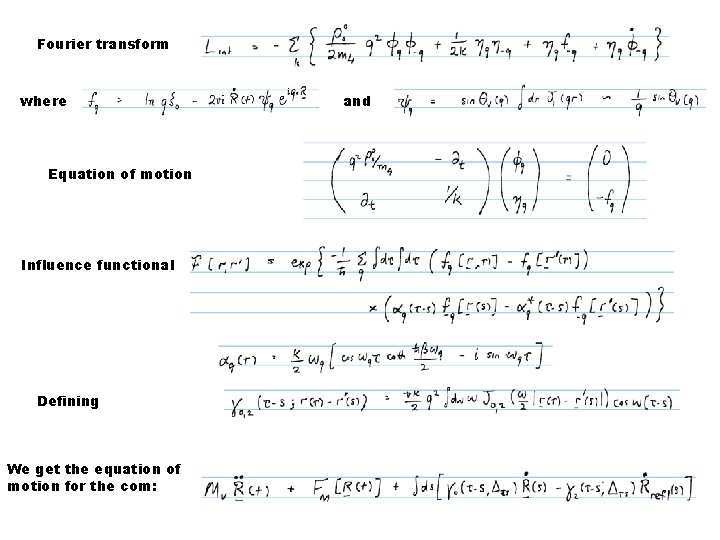 Fourier transform L_int = - Σ_k { ρ_s^o/2m_4 q² ϕ_q ϕ_-q + 1/2k η_q η_-q + η_q f_-q + η_q ϕ̇_-q }
where f_q = ln q ξ_o - 2νi Ṙ(t) ψ_q e^{iq.R} and ψ_q = sin θ_v(q) ∫dr J_1(qr) ~ 1/q sin θ_v(q)
Equation of motion ( q² ρ_s^o/m_4 - ∂_t ; ∂_t 1/k ) ( ϕ_q ; η_q ) = ( 0 ; -f_q )
Influence functional F[r,r'] = exp { -1/ħ Σ_q ∫dτ∫dτ ( f_q[r,τ)] - f_q[r'(τ)] )
× ( α_q(τ-s) f_q[r(s)] - α_q*(τ-s) f_q[r'(s)] ) }
α_q(τ) = k/2 ω_q [ cos ω_q τ coth ħβω_q/2 - i sin ω_q τ ]
Defining γ_0,2 (τ-s ; r(τ) - r'(s)) = νk/2 q² ∫dω ω J_0,2 ( ω/2 |r(τ) - r'(s)| ) cos ω(τ-s)
We get the equation of
motion for the com: M_v R̈(t) + F_M [R(t)] + ∫ds [ γ_0(τ-s, Δ_τs) Ṙ(s) - γ_2(τ-s; Δ_τs) Ṙ_refl(s) ]